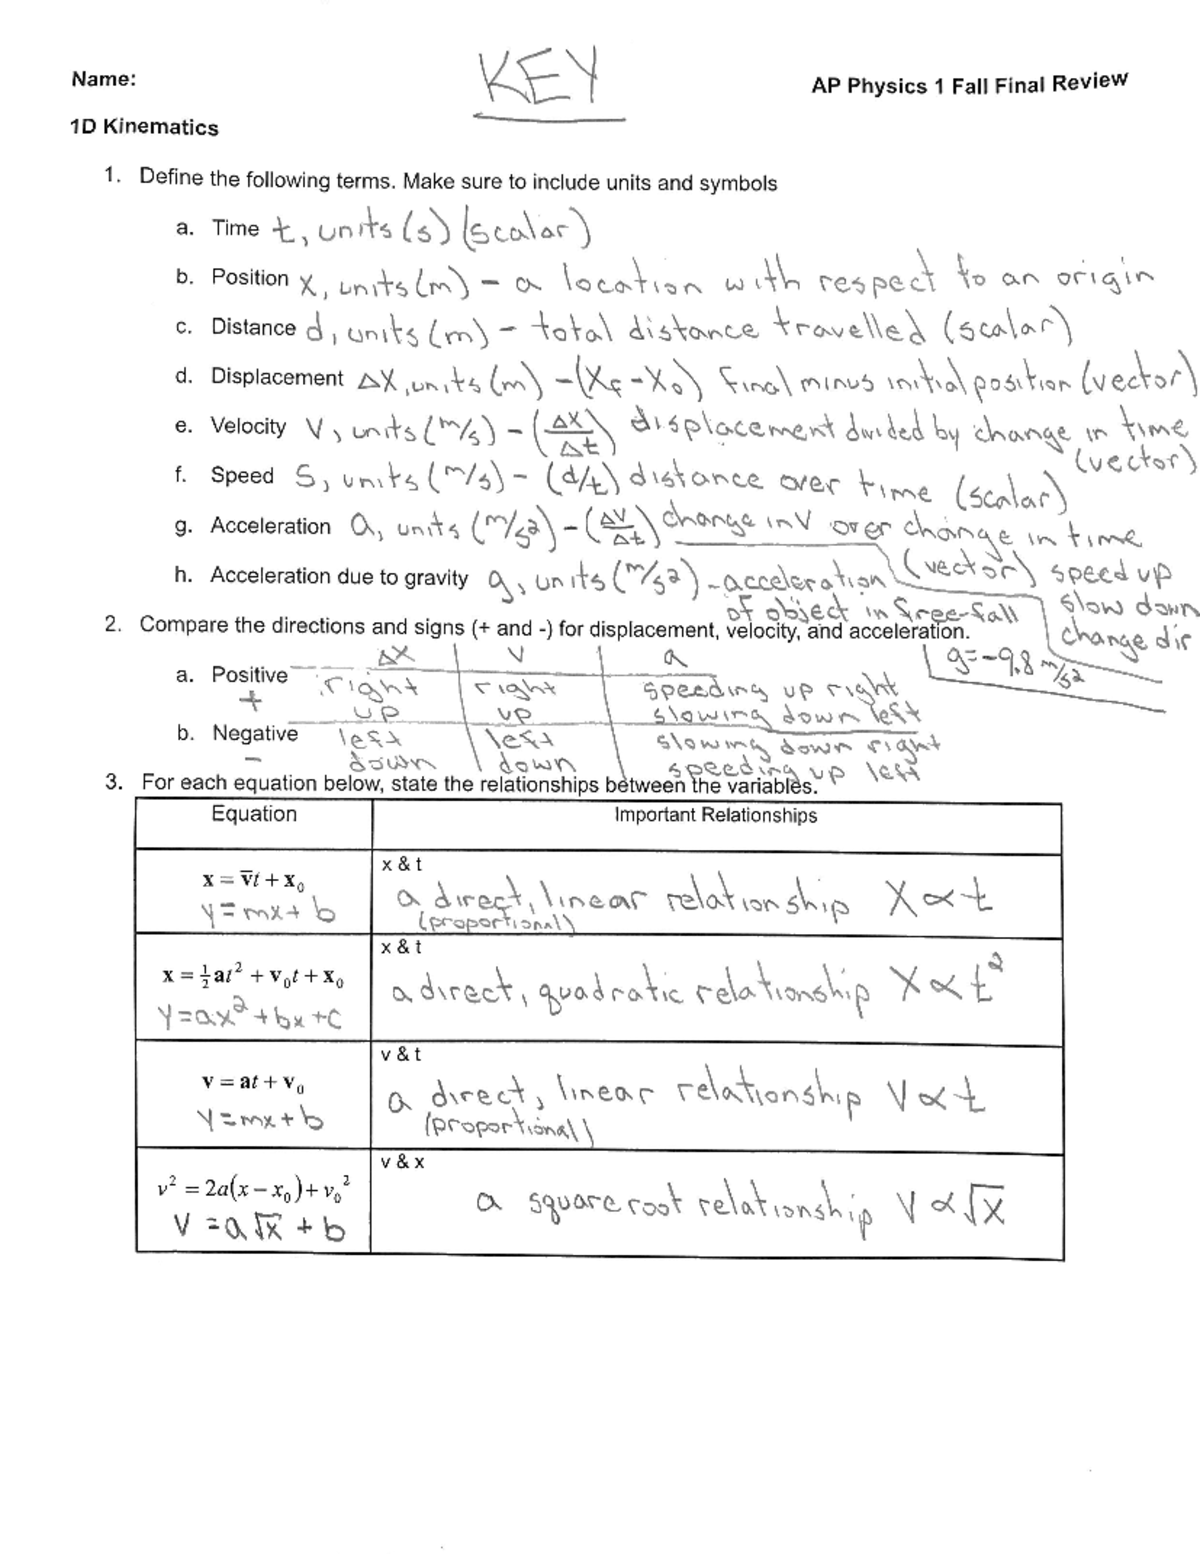 Name:
KEY
AP Physics 1 Fall Final Review
1D Kinematics
1. Define the following terms. Make sure to include units and symbols
a. Time t, units (s) (scalar)
b. Position x, units (m) - a location with respect to an origin
c. Distance d, units (m) - total distance travelled (scalar)
d. Displacement ΔX, units (m) - (Xf - X0) final minus initial position (vector)
e. Velocity V, units (m/s) - (ΔX/Δt) displacement divided by change in time
(vector)
f. Speed S, units (m/s) - (d/t) distance over time (scalar)
g. Acceleration a, units (m/s2) - (ΔV/Δt) change in V over change in time
(vector) speed up
slow down
change dir
h. Acceleration due to gravity g, units (m/s2) - acceleration
of object in free-fall
g = -9.8 m/s2
2. Compare the directions and signs (+ and -) for displacement, velocity, and acceleration.
ΔX V a
a. Positive right right speeding up right
+ up up slowing down left
b. Negative left left slowing down right
- down down speeding up left
3. For each equation below, state the relationships between the variables.
Equation Important Relationships
x & t
x = v̅t + x0
y = mx + b
a direct, linear relationship X ∝ t
(proportional)
x & t
x = ½at² + v0t + x0
y = ax² + bx + c
a direct, quadratic relationship X ∝ t²
v & t
v = at + v0
y = mx + b
a direct, linear relationship V ∝ t
(proportional)
v & x
v² = 2a(x − x0) + v0²
V = a√x + b
a square root relationship V ∝ √x